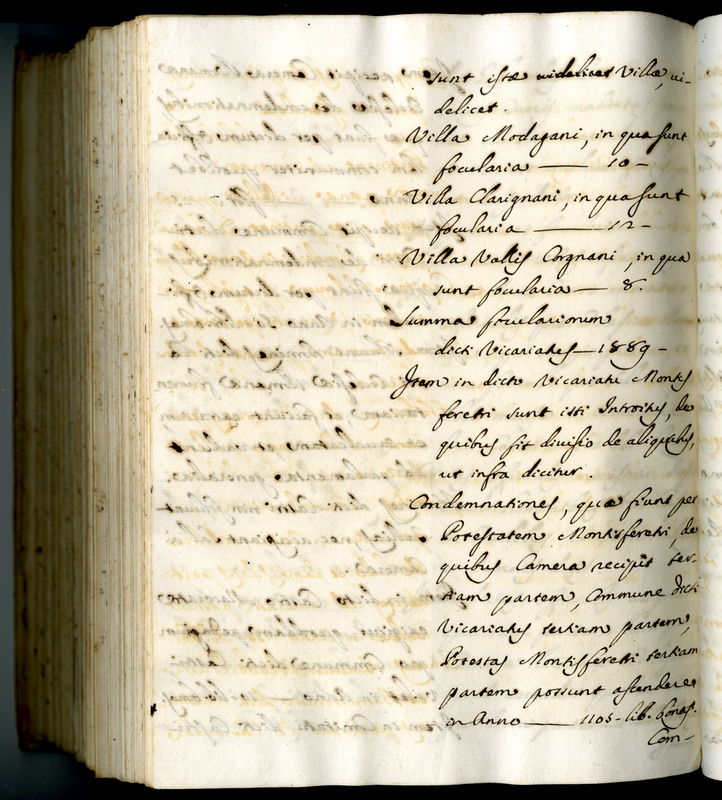 sunt istæ videlicet Villæ, vi-
delicet.
Villa Modagani, in qua sunt
focularia — 10 –
Villa Clarignani, in qua sunt
focularia — 12 –
Villa Vallis Corgnani, in qua
sunt focularia — 8.
Summa foculariorum
dicti Vicariatus — 1889 –
Item in dicto Vicariatu Montis
feretri sunt isti Introitus, de
quibus fit divisio de aliquibus,
ut infra dicitur.
Condemnationes, quæ fiunt per
Potestatem Montisferetri, de
quibus Camera recipit ter-
tiam partem, Commune dicti
Vicariatus tertiam partem,
Potestas Montisferetri tertiam
partem possunt ascendere
in Anno — 1105 – lib. bonas.
Com-